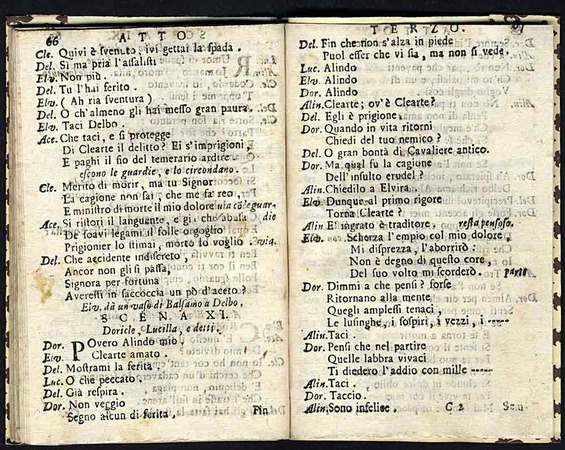 66 ATTO
Cle. Quivi è svenuto, ivi gettai la spada.
Del. Si ma pria l'assalisti
Elv. Non più.
Del. Tu l'hai ferito.
Elv. (Ah ria sventura)
Del. O ch'almeno gli hai messo gran paura.
Elv. Taci Delbo.
Ace. Che taci, e si protegge
Di Clearte il delitto? Ei s'imprigioni,
E paghi il fio del temerario ardire
escono le guardie, e lo circondano.
Cle. Merito di morir, ma tu Signor
La cagione non sai, che me fa reo
E ministro di morte il mio dolore via co le guar-
Ace. Si ristori il languente, e gi, ch'abusa die
De soavi legami il folle orgoglio
Prigionier lo stimai, morto lo voglio via.
Del. Che accidente indiscreto,
Ancor non gli si passa,
Signora per fortuna
Averessi in saccoccia un pò d'aceto?
Elv. dà un vaso di Balsamo a Delbo,
SCENA XI.
Doricle, Lucilla, e detti.
Dor. POvero Alindo mio,
Elv. Clearte amato.
Del. Mostrami la ferita
Luc. O che peccato.
Del. Già respira.
Dor. Non veggio
Segno alcun di ferita. Fin
TERZO.
Del. Fin che non s'alza in piede
Puol esser che vi sia, ma non si vede.
Luc. Alindo
Elv. Alindo
Dor. Alindo
Alin. Clearte; ov'è Clearte?
Del. Egli è prigione.
Dor. Quando in vita ritorni
Chiedi del tuo nemico?
Del. O gran bontà di Cavaliere antico.
Dor. Ma qual fu la cagione
Dell'insulto crudel?
Alin. Chiedilo a Elvira.
Elv. Dunque al primo rigore
Torna Clearte?
Alin. El'ingrato è traditore. resta pensoso.
Elv. Scherza l'empio col mio dolore,
Mi disprezza, l'aborrirò:
Non è degno di questo core,
Del suo volto mi scorderò. parte
Dor. Dimmi a che pensi? forse
Ritornano alla mente
Quegli amplessi tenaci,
Le lusinghe, i sospiri, i vezzi, i -----
Alin. Taci.
Dor. Pensi che nel partire
Quelle labbra vivaci
Ti diedero l'addio con mille -----
Alin. Taci.
Dor. Taccio.
Alin. Sono infelice. C 2 Sen-